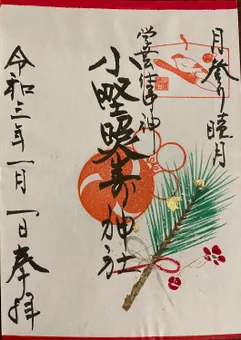 月参り睦月
学芸
小野照崎神社
令和三年一月一日奉拝